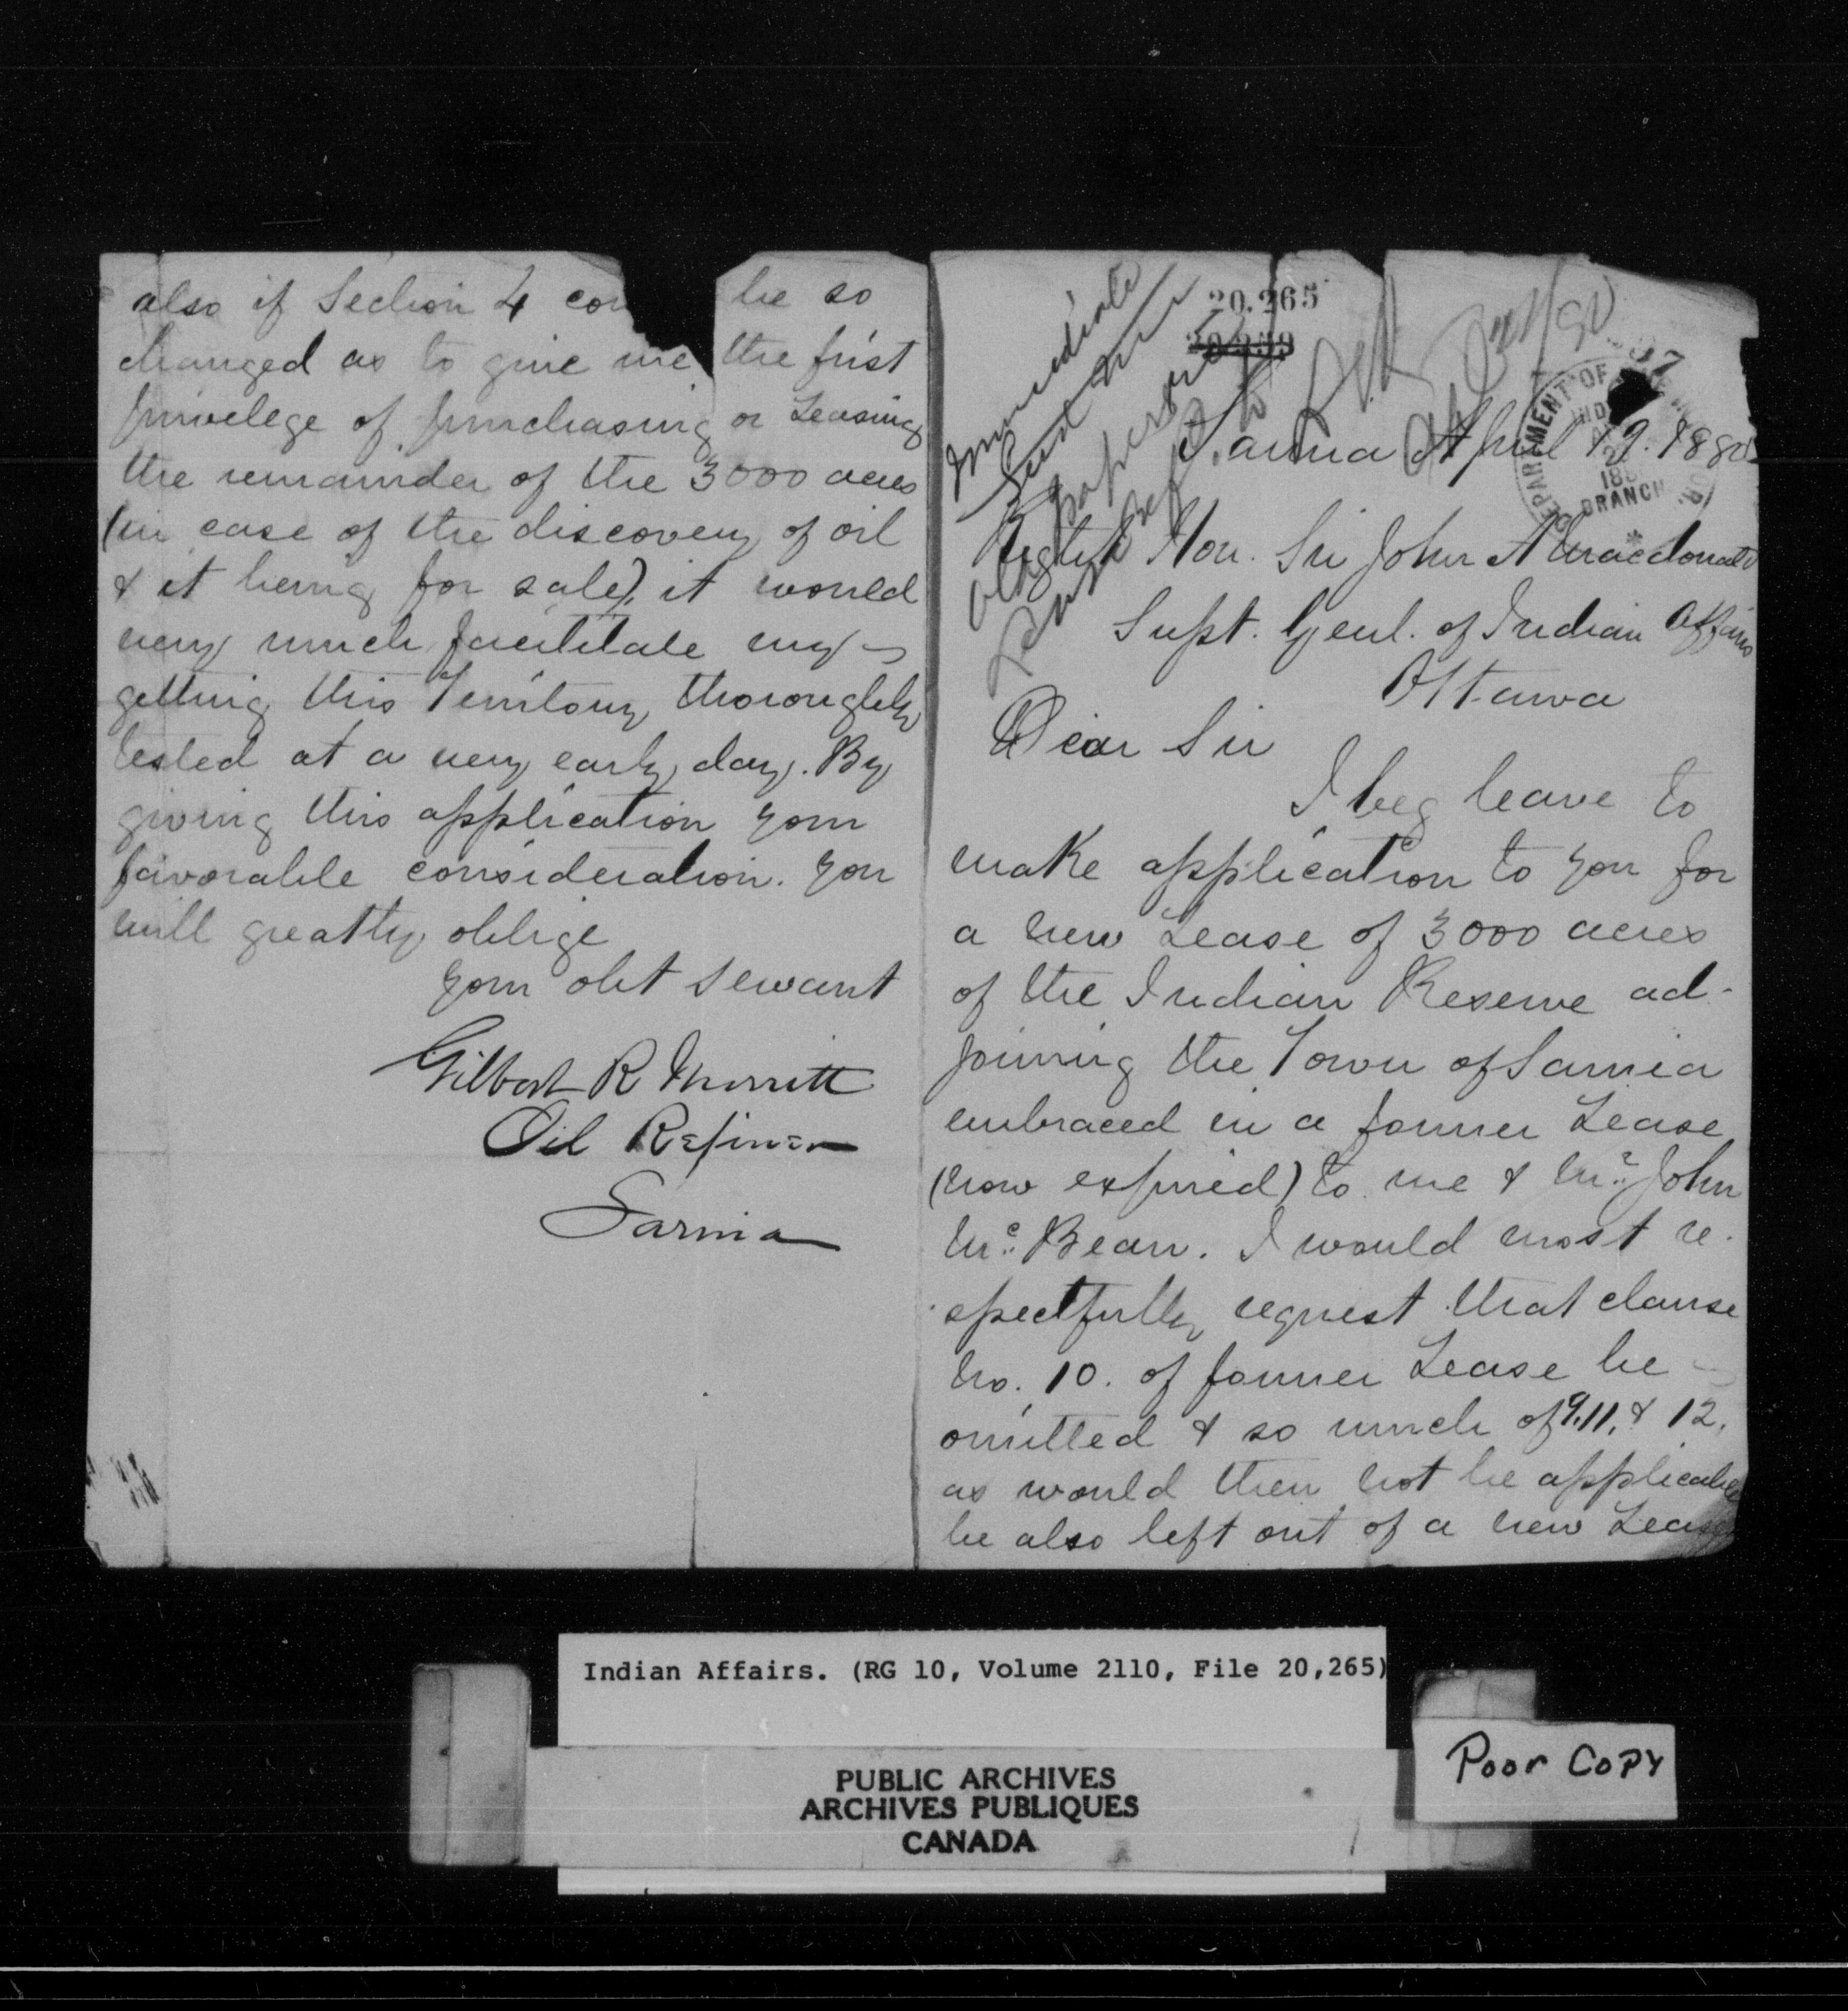 20,265
Immediate
Sarnia April 19. 1880
DEPARTMENT OF
BRANCH
Right Hon. Sir John A Macdonald
Supt. Genl. of Indian Affairs
Ottawa
Dear Sir
I beg leave to
make application to you for
a new Lease of 3000 acres
of the Indian Reserve ad-
joining the Town of Sarnia
embraced in a former Lease
(now expired) to me & Mr. John
Mc. Bean. I would most re-
spectfully request that clause
No. 10. of former Lease be
omitted & so much of 9.11. & 12.
as would then not be applicable
be also left out of a new Lease
also if Section 4 be so
changed as to give me the first
privelege of purchasing or Leasing
the remainder of the 3000 acres
(in case of the discovery of oil
& it being for sale), it would
very much facilitate my
getting this Territory thoroughly
tested at a very early day. By
giving this application your
favorable consideration. you
will greatly oblige
your obt servant
Gilbert R Merritt
Oil Refiner
Sarnia
Indian Affairs. (RG 10, Volume 2110, File 20,265)
PUBLIC ARCHIVES
ARCHIVES PUBLIQUES
CANADA
Poor Copy